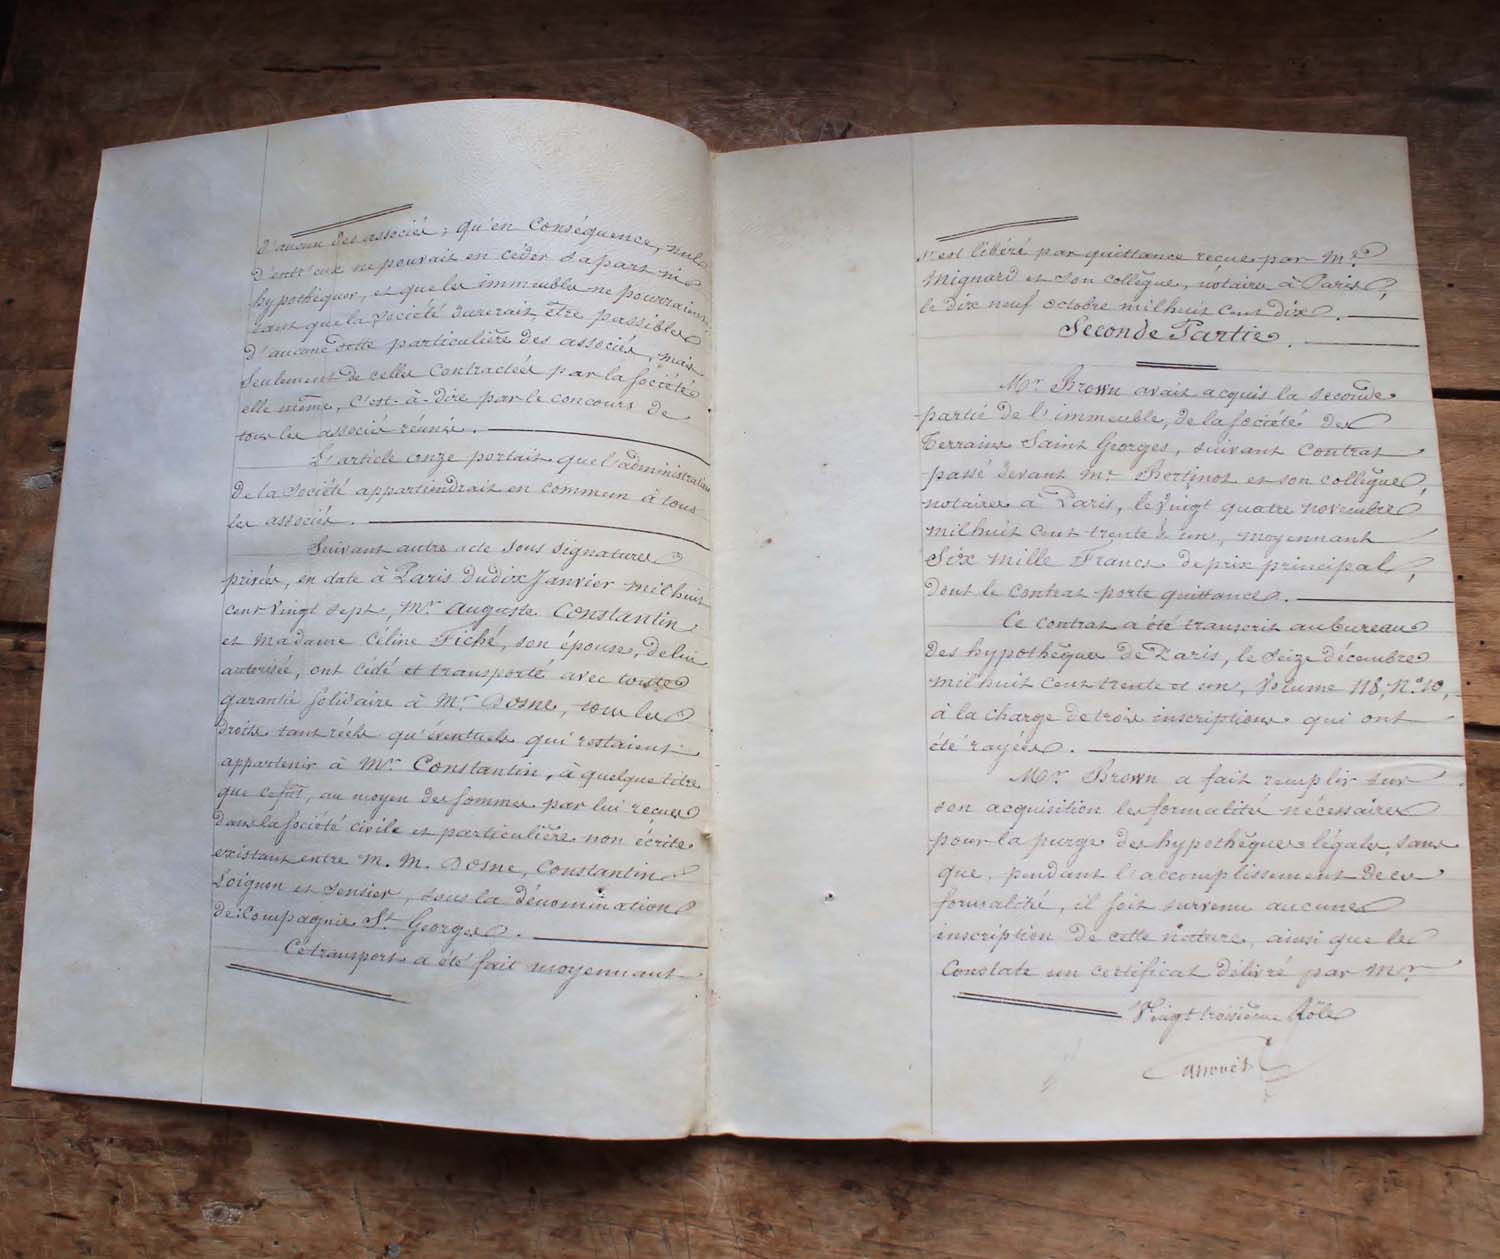 d'aucun des associés; qu'en Conséquence, nul
d'entr'eux ne pouvait en céder sa part ni
hypothéquer, et que les immeubles ne pourraient
tant que la Société durerait, Être passibles
d'aucune dette particulière des associés, mais
Seulement de celles Contractées par la Société
elle même, C'est-à-dire par le concours de
tous les associés réunis.
L'article onze portait que l'administration
de la Société appartiendrait en commun à tous
les associés.
Suivant autre acte sous signatures
privées, en date à Paris du dix Janvier mil huit
cent vingt sept, Mr. Auguste Constantin
et Madame Céline Fiché, son épouse, de lui
autorisée, ont cédé et transporté avec toute
garantie solidaire à Mr. Dosne, tous les
droits tant réels qu'éventuels qui restaient
appartenir à Mr. Constantin, à quelque titre
que ce fût, au moyen des sommes par lui reçues
dans la Société civile et particulière non écrite
existant entre M. M. Dosne, Constantin
Loignon et Sensier, sous la dénomination
de: Compagnie St. Georges.
Ce transport a été fait moyennant
s'est libéré par quittance reçue par Mr.
Mignard et son collègue, notaires à Paris,
le dix neuf octobre mil huit cent dix.
Seconde Partie.
Mr. Brown avait acquis la seconde
partie de l'immeuble, de la Société des
Terrains Saint Georges, suivant contrat
passé devant Mr. Bertinot et son collègue,
notaires à Paris, le vingt quatre novembre
mil huit cent trente & un, moyennant
Six mille Francs de prix principal,
dont le contrat porte quittance.
Ce contrat a été transcrit au bureau
des hypothèques de Paris, le seize décembre
mil huit cent trente et un, Volume 118, No. 10,
à la charge de trois inscriptions qui ont
été rayées.
Mr. Brown a fait remplir sur
son acquisition les formalités nécessaires
pour la purge des hypothèques légales, sans
que, pendant l'accomplissement de ces
formalités, il soit survenu aucune
inscription de cette nature, ainsi que le
Constate un certificat délivré par Mr.
Vingt troisième Rôle